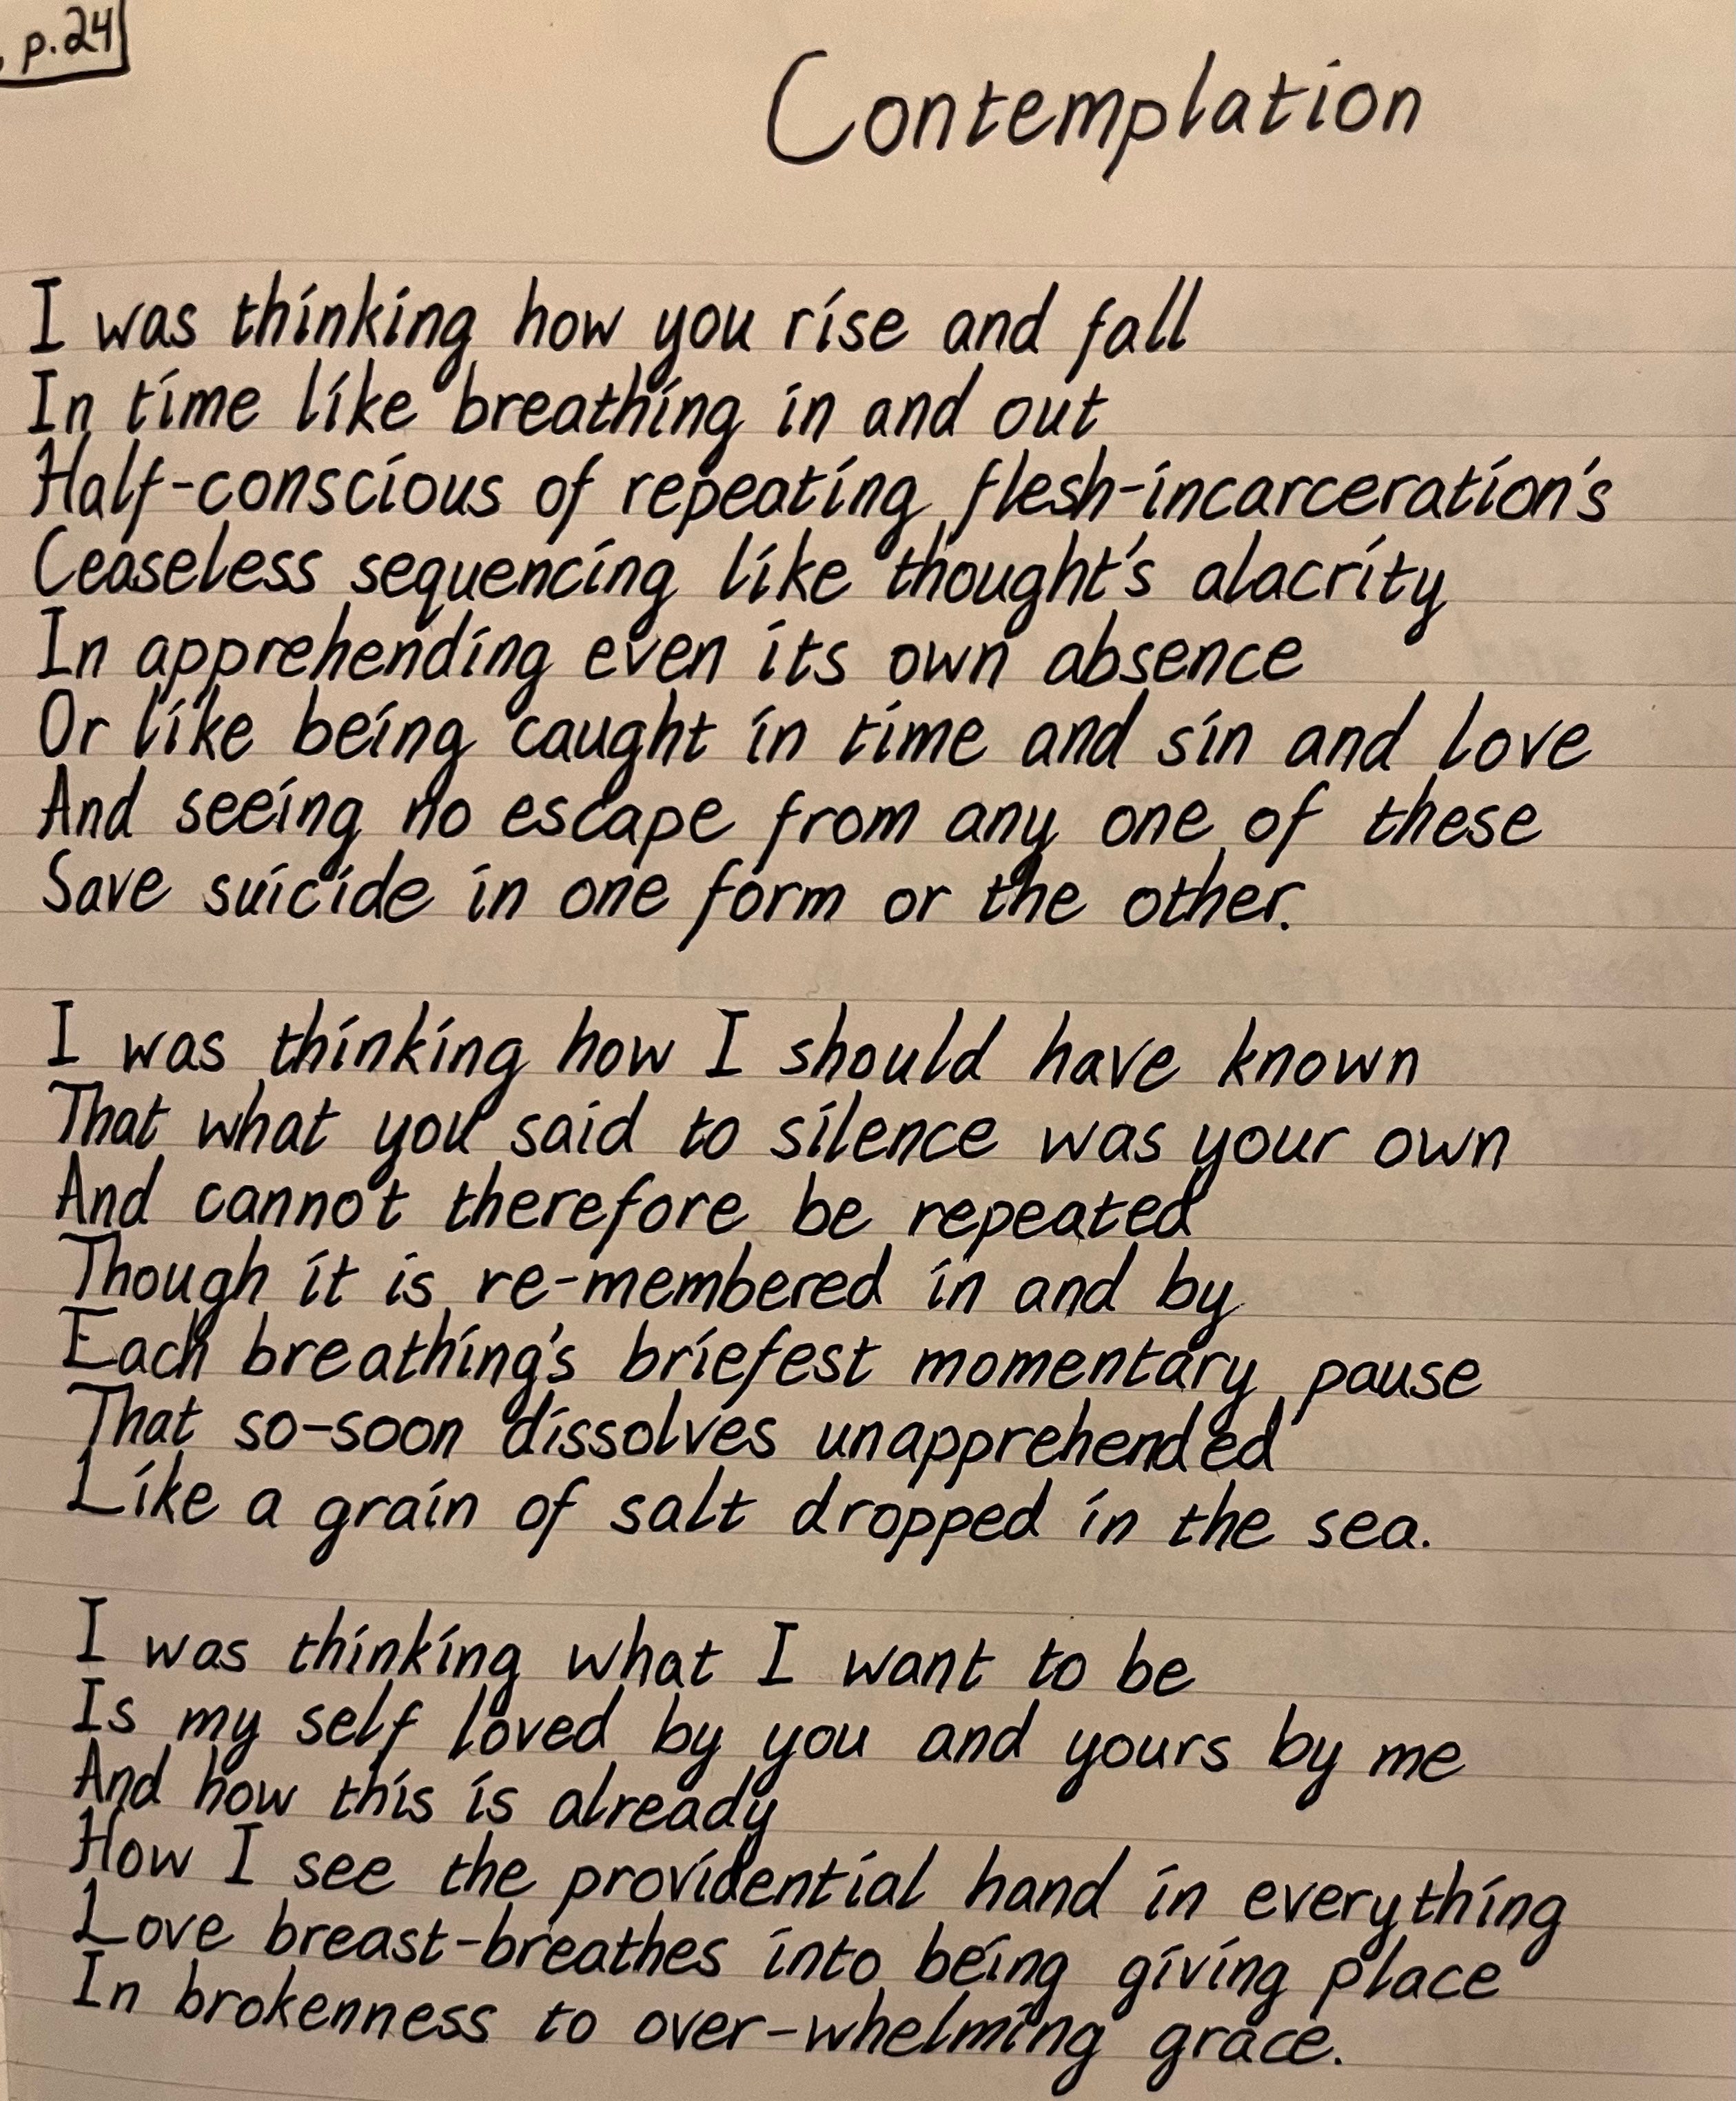 p.24
Contemplation
I was thinking how you rise and fall
In time like breathing in and out
Half-conscious of repeating flesh-incarceration's
Ceaseless sequencing like thought's alacrity
In apprehending even its own absence
Or like being caught in time and sin and love
And seeing no escape from any one of these
Save suicide in one form or the other.
I was thinking how I should have known
That what you said to silence was your own
And cannot therefore be repeated
Though it is re-membered in and by
Each breathing's briefest momentary pause
That so-soon dissolves unapprehended
Like a grain of salt dropped in the sea.
I was thinking what I want to be
Is my self loved by you and yours by me
And how this is already
How I see the providential hand in everything
Love breast-breathes into being giving place
In brokenness to over-whelming grace.